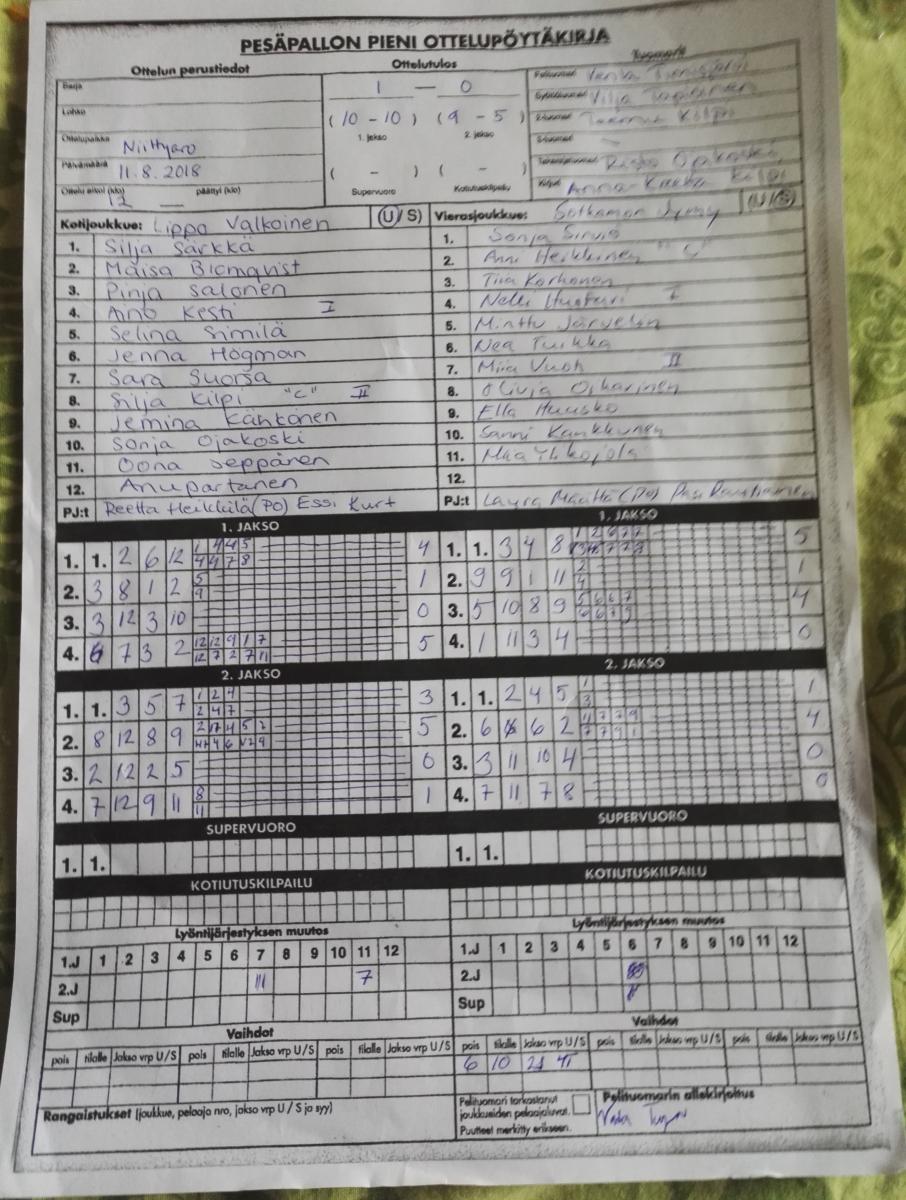 PESÄPALLON PIENI OTTELUPÖYTÄKIRJA
Ottelun perustiedot
Sarja
Lohko
Ottelupaikka Niittyaro
Päivämäärä 11.8.2018
Ottelu alkoi (klo) 12 — päättyi (klo)
Ottelutulos
1 — 0
(10 - 10) (9 - 5)
1. jakso 2. jakso
( - ) ( - )
Supervuoro Kotiutuskilpailu
Tuomarit
Pelituomari
Syöttötuomari Vilja
2-tuomari Kilpi
3-tuomari —
Takarajatuomari Ojakoski
Kirjuri Anna- Kilpi
Kotijoukkue: Lippo Valkoinen (U/S)
1. Silja Särkkä
2. Maisa Blomqvist
3. Pinja Salonen
4. Aino Kesti I
5. Selina Similä
6. Jenna Högman
7. Sara Suorsa
8. Silja Kilpi "C" II
9. Jemina Käntönen
10. Sonja Ojakoski
11. Oona Seppänen
12. Anu Partanen
PJ:t Reetta Heikkilä (PO) Essi Kurt
Vierasjoukkue: Sotkamon Jymy (U/S)
1. Sonja Sirviö
2. Anni Heikkinen "C"
3. Tiia Korhonen
4. Nelli I
5. Minttu Järvelin
6. Nea Turkka
7. Miia II
8. Olivia Oikarinen
9. Ella Huusko
10. Sanni Kankkunen
11. Miia Ylikojola
12.
PJ:t Laura (PO) Pasi
1. JAKSO
1. 1. 2 6 12 4
2. 3 8 1 2 5 9 1
3. 3 12 3 10 0
4. 6 7 3 2 5
1. JAKSO
1. 1. 3 4 8 5
2. 9 9 1 11 2 4 1
3. 5 10 8 9 4
4. 1 11 3 4 0
2. JAKSO
1. 1. 3 5 7 1 2 4 2 4 7 3
2. 8 12 8 9 5
3. 2 12 2 5 0
4. 7 12 9 11 8 11 1
2. JAKSO
1. 1. 2 4 5 1 3 1
2. 6 6 2 4
3. 3 11 10 4 0
4. 7 11 7 8 0
SUPERVUORO
1. 1.
SUPERVUORO
1. 1.
KOTIUTUSKILPAILU
KOTIUTUSKILPAILU
Lyöntijärjestyksen muutos
1.J 1 2 3 4 5 6 7 8 9 10 11 12
2.J 11 7
Sup
Lyöntijärjestyksen muutos
1.J 1 2 3 4 5 6 7 8 9 10 11 12
2.J
Sup
Vaihdot
pois tilalle Jakso vrp U/S pois tilalle Jakso vrp U/S pois tilalle Jakso vrp U/S
Vaihdot
pois tilalle Jakso vrp U/S pois tilalle Jakso vrp U/S pois tilalle Jakso vrp U/S
6 10
Rangaistukset (joukkue, pelaaja nro, jakso vrp U / S ja syy)
Pelituomari tarkastanut
joukkueiden pelaajaluvat.
Puutteet merkitty erikseen.
Pelituomarin allekirjoitus